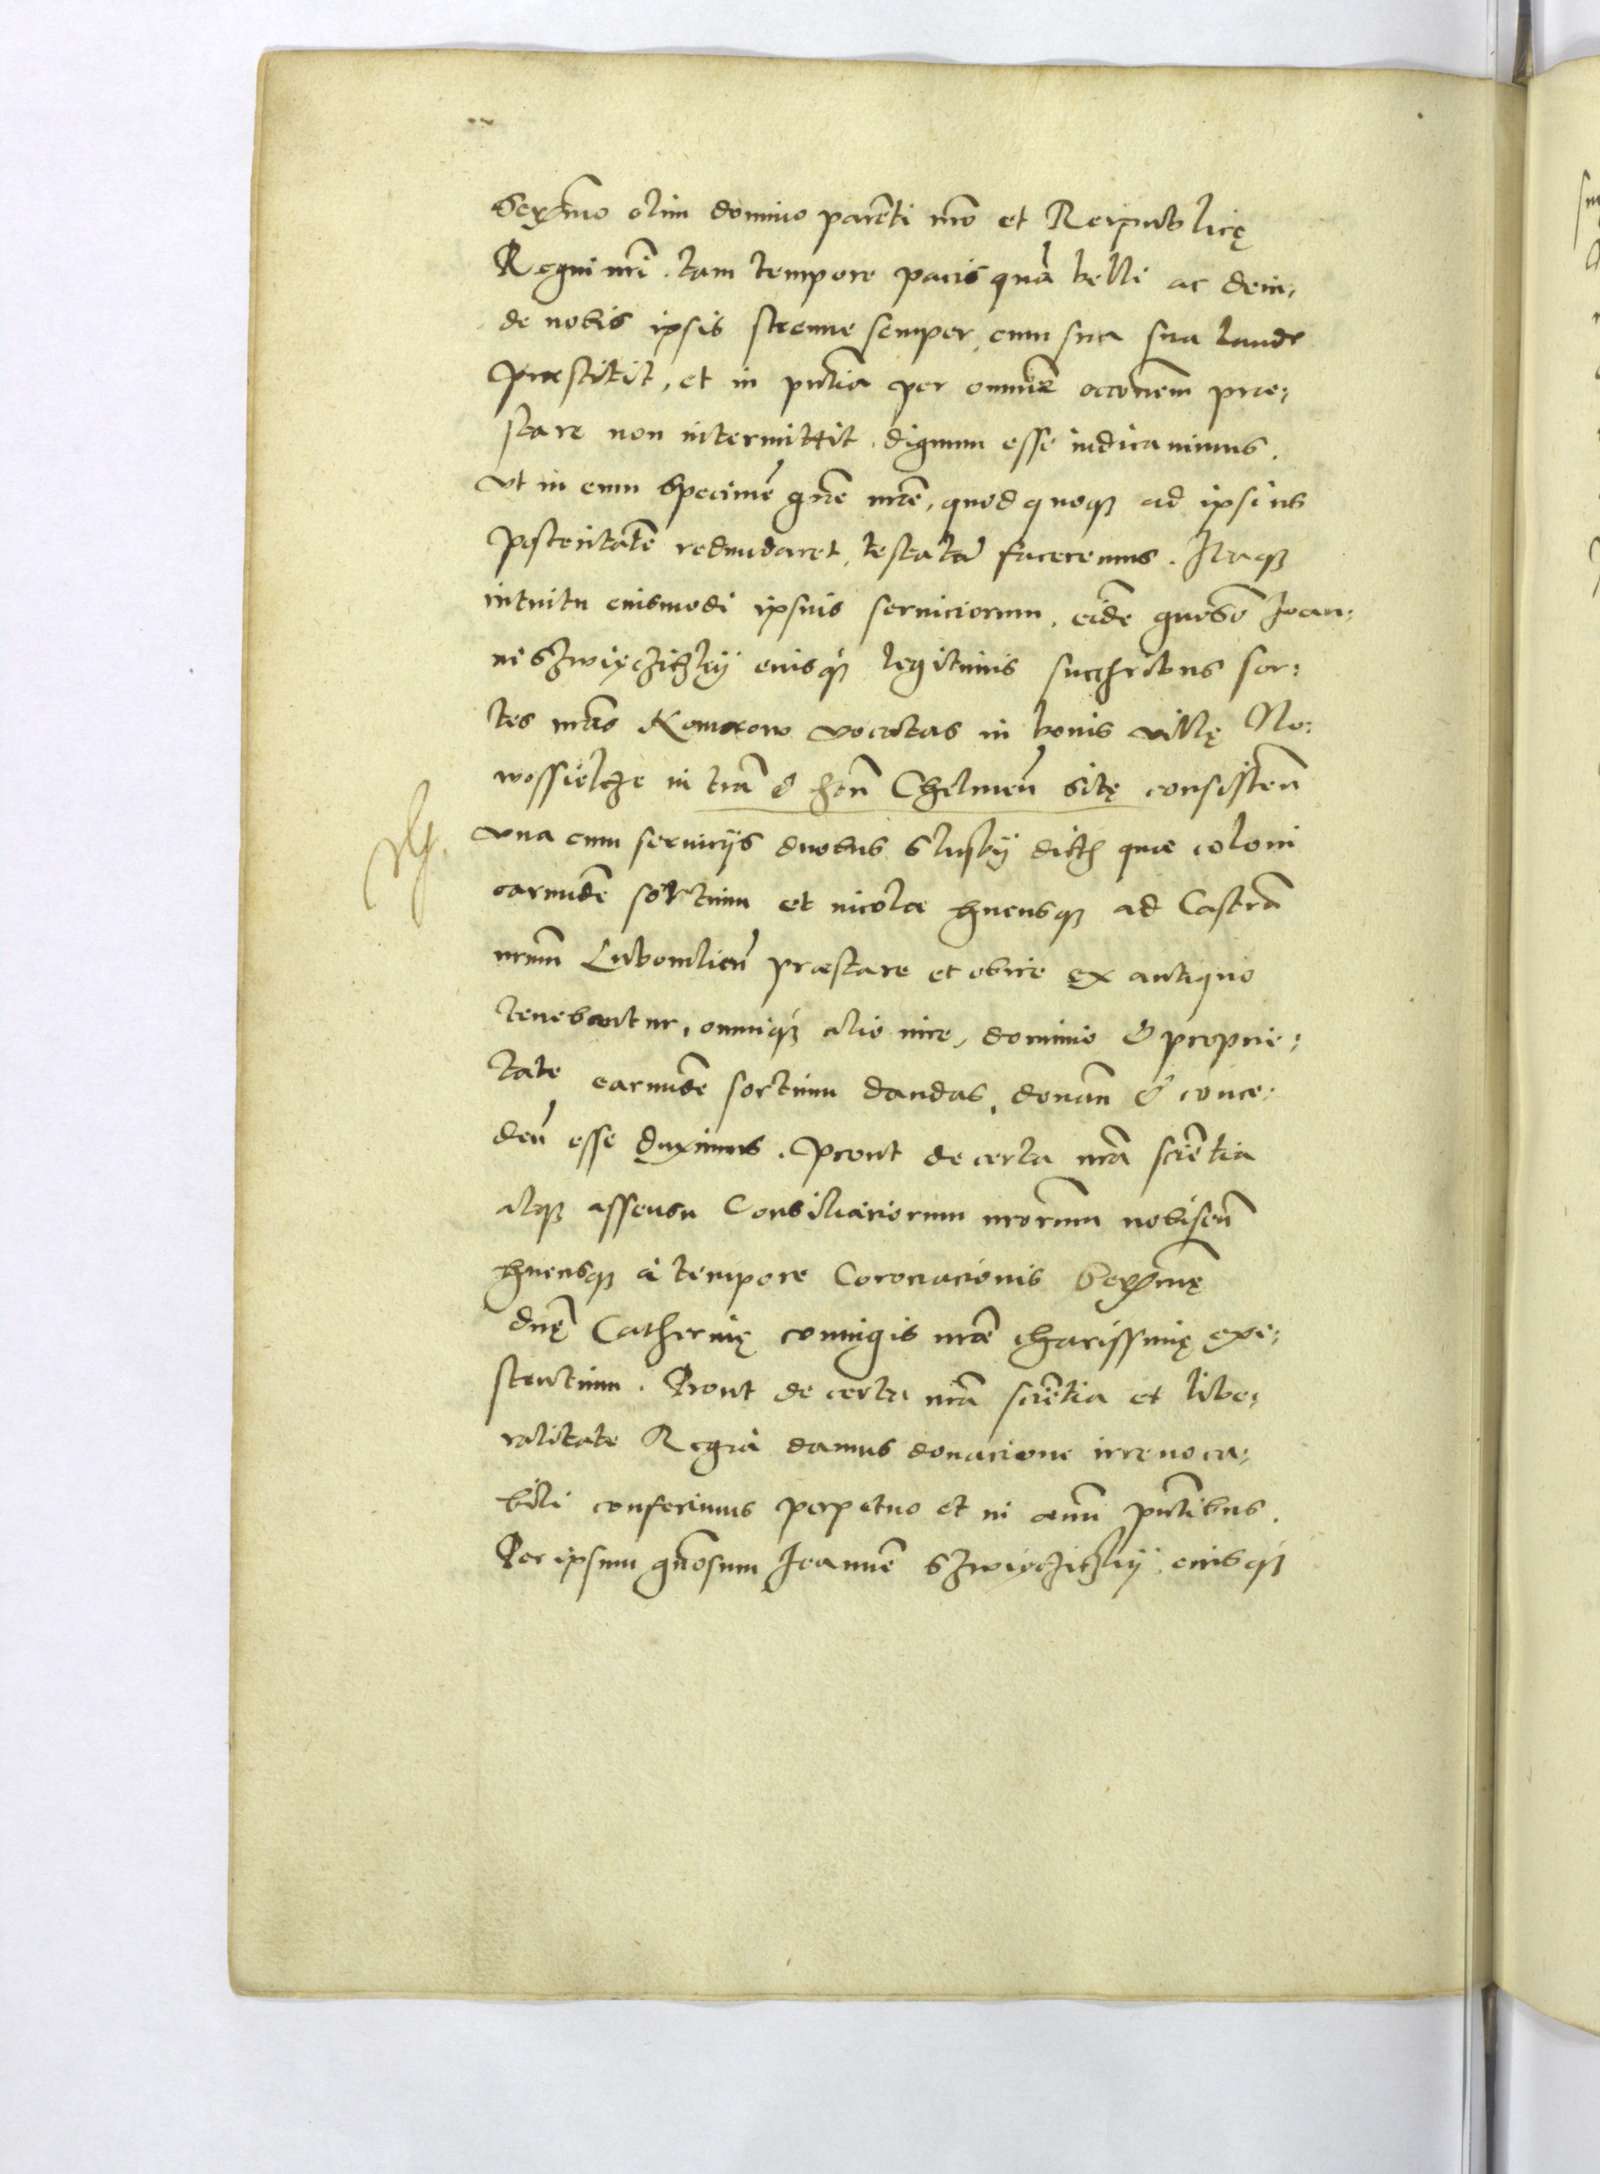 Serᵐᵒ olim domino parēti nr̄o et Reipublicę
Regni nr̄i. tam tempore pacis quā belli ac dein,
de nobis ipsis strenue semper, cum sua sua laude
præstitit, et in pn̄tia per omnē occonem̄ præ,
stare non intermittit. dignum esse iudicauimus.
vt in eum specimē gr̄e nr̄e, quod quoq ad ipsius
posteritatē redundaret, testatū faceremus. Itaq
intuitu eiusmodi ipsius seruiciorum, eidē gn̄oso Joan:
ni Szwiyczitzky eiusq́ legitimis succ̄ribus sor:
tes nr̄as Komorow vocatas in bonis villę No:
wosielcze in trā & Chelmeń sitę consisteñ
vna cum seruicijs duobus Slusby dict̄ quæ coloni
earundē sortium et incolæ hucusq ad Castrū
nr̄um Lubomlień præstare et obire ex antiquo
tenebantur, omniq́ alio iure, dominio & proprie:
tate earundē sortium dandas, donañ & conce:
deñ esse duximus. Prout de certa nr̄a sciētia
atq assensu Consiliariorum nr̄orum nobiscū
hucusq à tempore Coronacionis Serᵐę
dn̄ę Catherinę coniugis nr̄æ charissimę exi:
stentium. Prout de certa nr̄a sciētia et libe:
ralitate Regia damus donacione irreuoca:
bili conferimus perpetuo et in æuū pn̄tibus.
Per ipsum gn̄osum Joannē Szwiyczitzky eiusq́